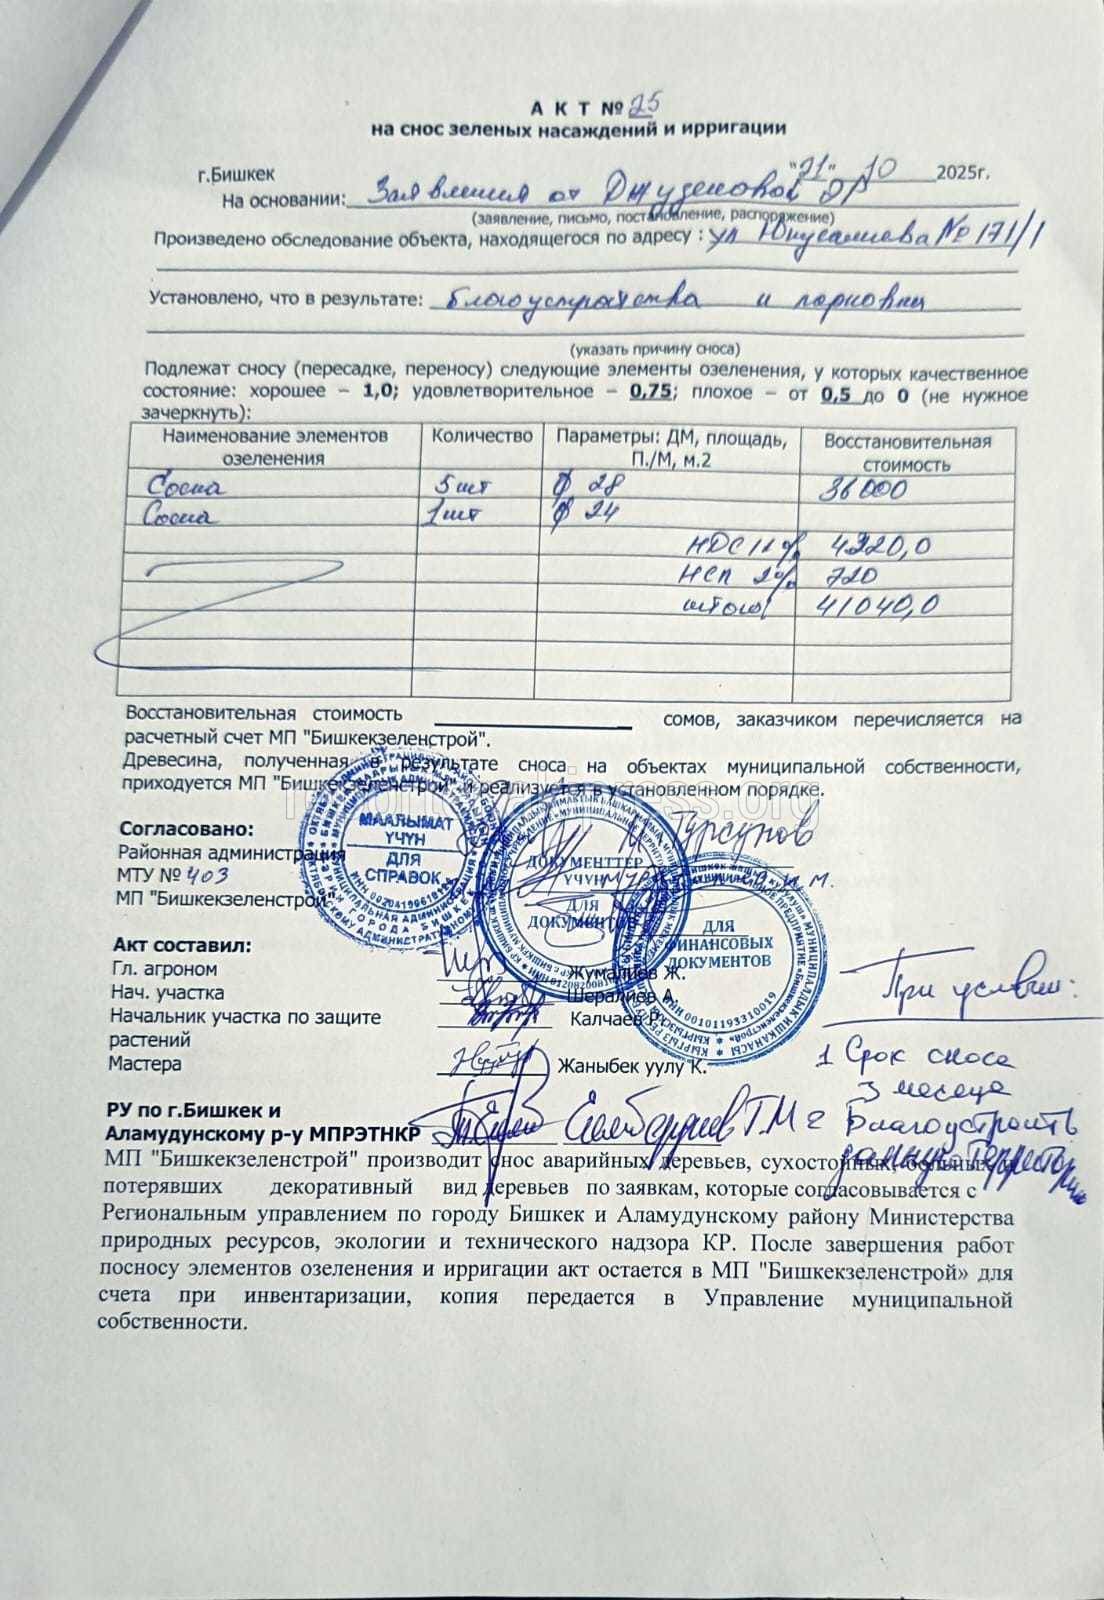 А К Т № 25
на снос зеленых насаждений и ирригации
г.Бишкек "21" 10 2025г.
На основании: Заявления от
(заявление, письмо, постановление, распоряжение)
Произведено обследование объекта, находящегося по адресу : ул Юнусалиева № 171/1
Установлено, что в результате: благоустройства и парковки
(указать причину сноса)
Подлежат сносу (пересадке, переносу) следующие элементы озеленения, у которых качественное
состояние: хорошее – 1,0; удовлетворительное – 0,75; плохое – от 0,5 до 0 (не нужное
зачеркнуть):
Наименование элементов озеленения Количество Параметры: ДМ, площадь, П./М, м.2 Восстановительная стоимость
Сосна 5 шт ф 28 36000
Сосна 1 шт ф 24
НДС 12% 4320,0
НСП 2% 720
итого 41040,0
Восстановительная стоимость сомов, заказчиком перечисляется на
расчетный счет МП "Бишкекзеленстрой".
Древесина, полученная в результате сноса на объектах муниципальной собственности,
приходуется МП "Бишкекзеленстрой" и реализуется в установленном порядке.
Согласовано:
Районная администрация Турсунов
МТУ № 403
МП "Бишкекзеленстрой"
МААЛЫМАТ
ҮЧҮН
ДЛЯ
СПРАВОК
ИНН
ДОКУМЕНТТЕР
ҮЧҮН
ДЛЯ
ДОКУМЕНТОВ
ДЛЯ
ФИНАНСОВЫХ
ДОКУМЕНТОВ
ИНН 00101193310019
Акт составил:
Гл. агроном Жумалиев Ж.
Нач. участка Шералиев А.
Начальник участка по защите Калчаев
растений
Мастера Жаныбек уулу К.
При условии:
1 Срок сноса
3 месяца
2 Благоустроить
данную территорию
РУ по г.Бишкек и
Аламудунскому р-у МПРЭТНКР
МП "Бишкекзеленстрой" производит снос аварийных деревьев, сухостойных, больных и
потерявших декоративный вид деревьев по заявкам, которые согласовывается с
Региональным управлением по городу Бишкек и Аламудунскому району Министерства
природных ресурсов, экологии и технического надзора КР. После завершения работ
посносу элементов озеленения и ирригации акт остается в МП "Бишкекзеленстрой» для
счета при инвентаризации, копия передается в Управление муниципальной
собственности.